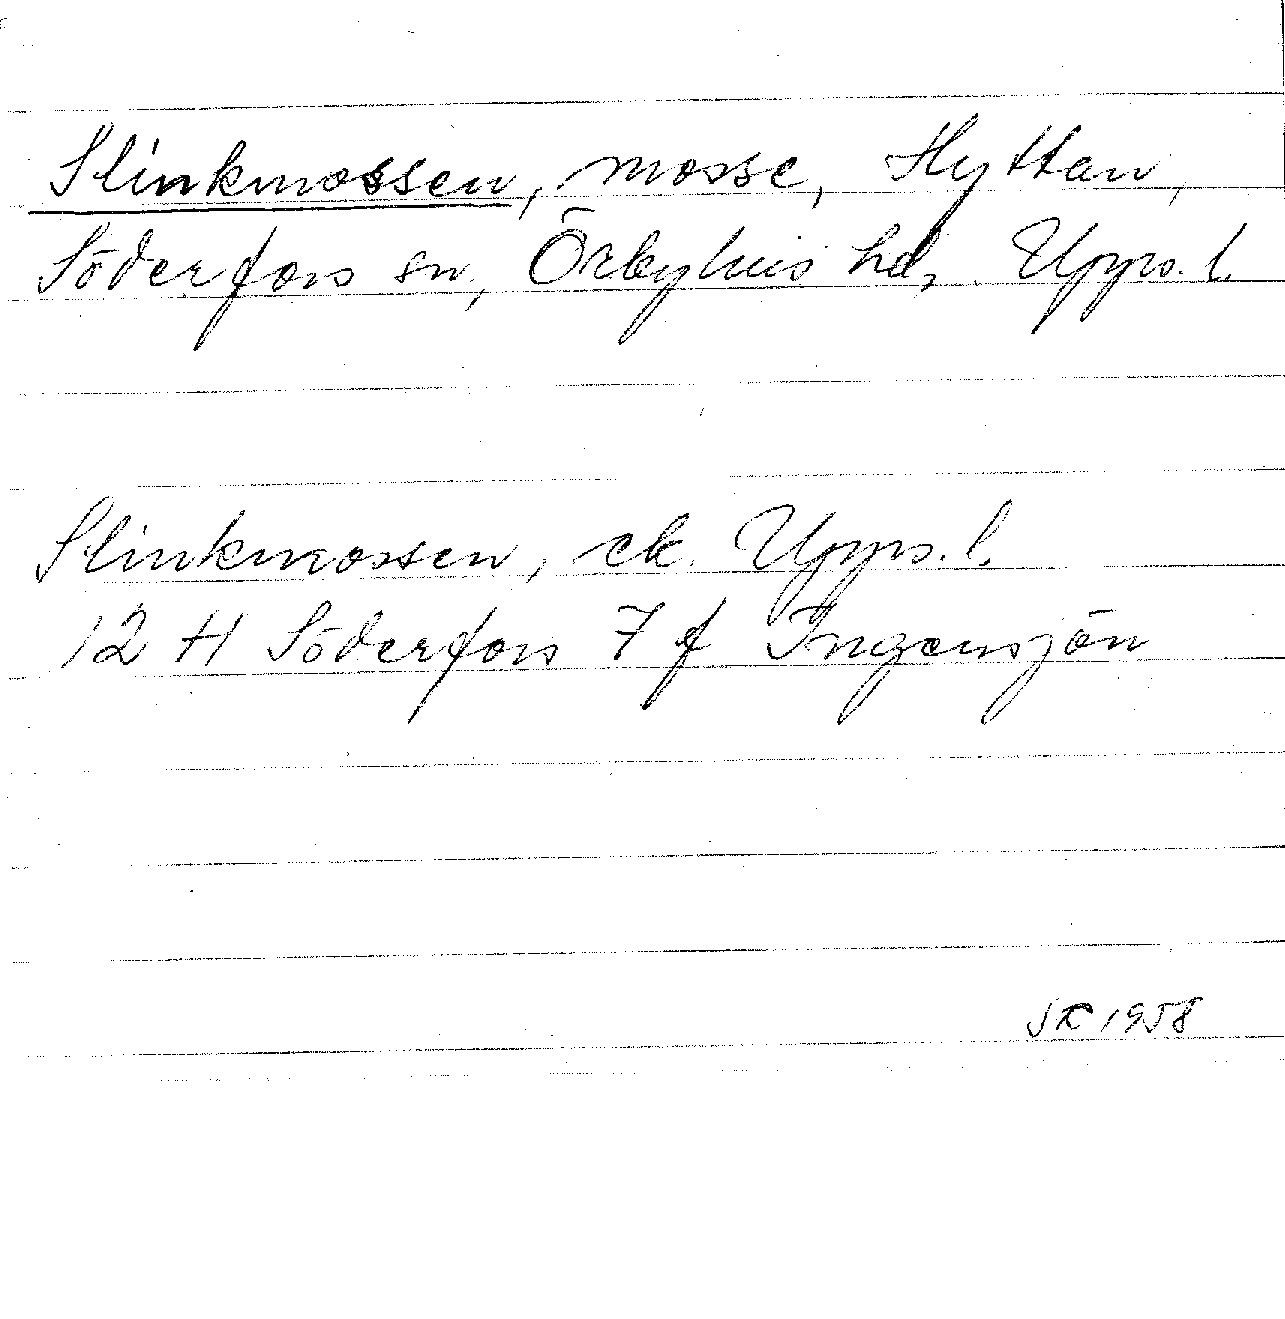 Slinkmossen, mosse, Hyttan,
Söderfors sn, Örbyhus hd, Upps. l.
Slinkmossen, ek. Upps. l.
12 H Söderfors 7 f Ingensjön
1958